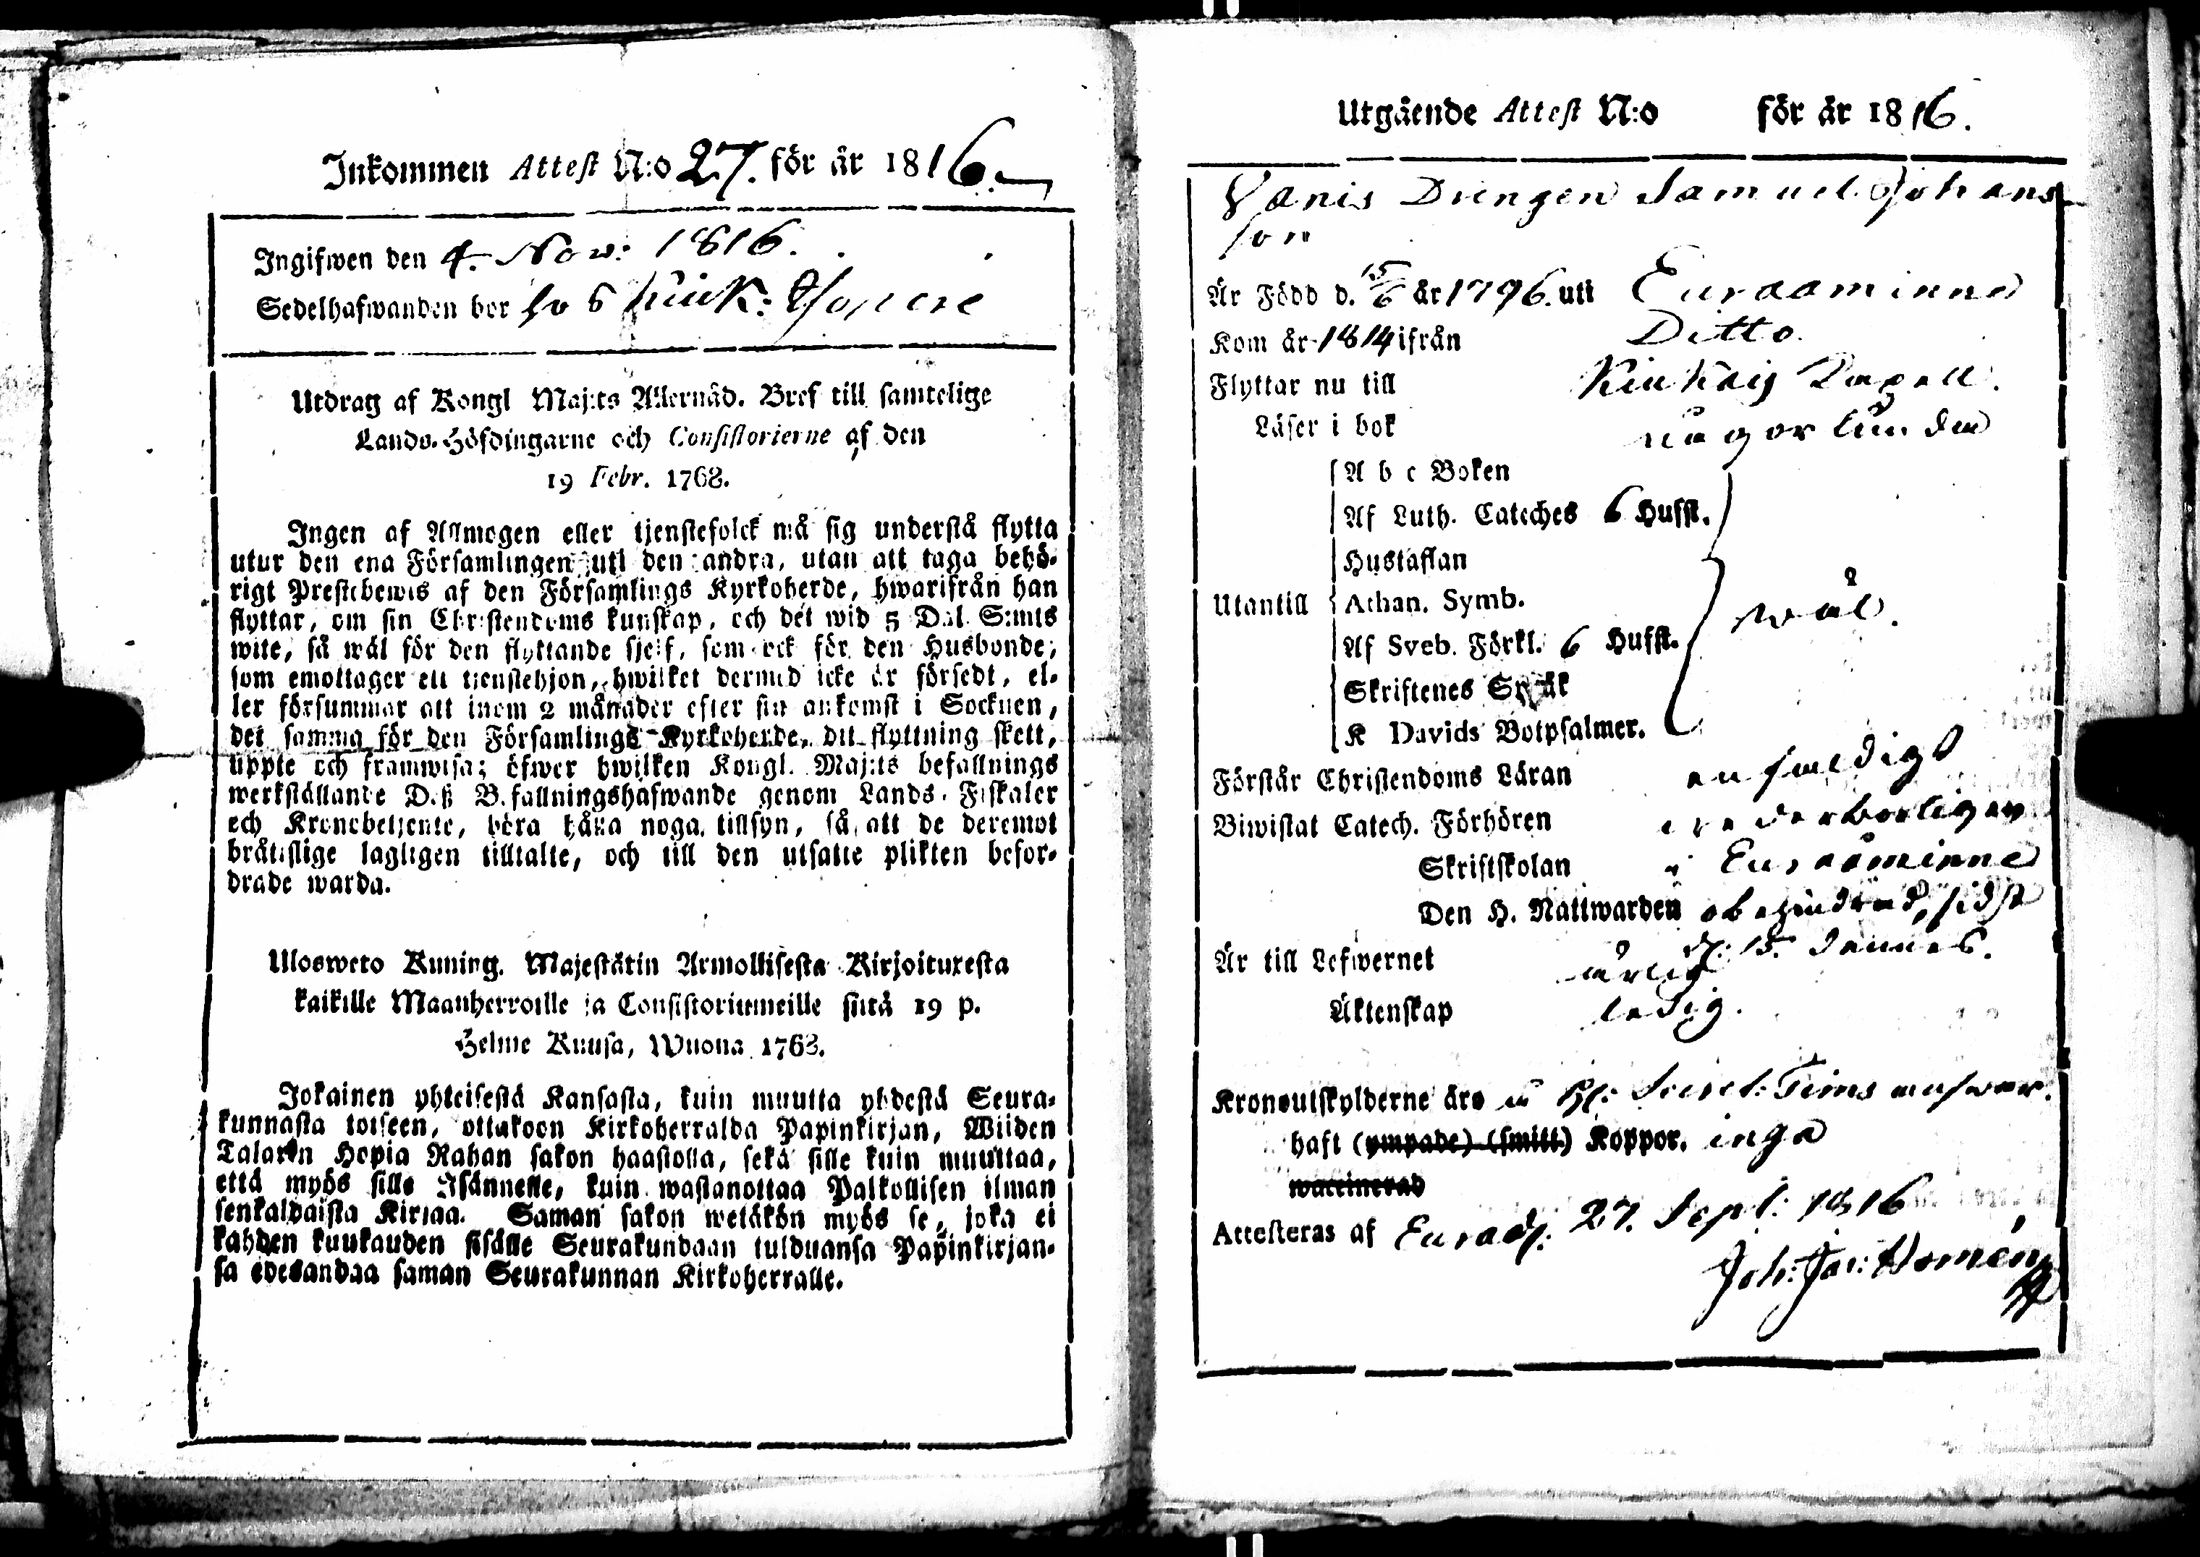 Inkommen Attest N:o 27. för år 1816.
Ingifwen den 4. Nov: 1816.
Sedelhafwanden bor hos
Utdrag af Kongl Maj:ts Allernåd. Bref till samtelige
Lands-Höfdingarne och Consistorierne af den
19 Febr. 1768.
Ingen af Allmogen eller tjenstefolck må sig understå flytta
utur den ena Församlingen uti den andra, utan att taga behö-
rigt Prestebewis af den Församlings Kyrkoherde, hwarifrån han
flyttar, om sin Christendoms kunskap, och det wid 5 Dal. S:mts
wite, så wäl för den flyttande sjelf, som ock för den Husbonde,
som emottager ett tjenstehjon, hwilket dermed icke är försedt, el-
ler försummar att inom 2 månader efter sin ankomst i Socknen,
det samma för den Församlings Kyrkoherde, dit flyttning skett,
uppte och framwisa; öfwer hwilken Kongl. Maj:ts befallnings
werkställande Deß Befallningshafwande genom Lands-Fiskaler
och Kronobetjente, böra hålla noga tillsyn, så att de deremot
bråtislige lagligen tilltalte, och till den utsatte plikten befor-
drade warda.
Ulosweto Kuning. Majestätin Armollisesta Kirjoituxesta
kaikille Maanherroille ja Consistoriumeille siitä 19 p.
Helme Kuusa, Wuona 1768.
Jokainen yhteisestä Kansasta, kuin muutta yhdestä Seura-
kunnasta toiseen, ottakoon Kirkoherralda Papinkirjan, Wiiden
Talarin Hopia Rahan sakon haastolla, sekä sille kuin muuttaa,
että myös sille Isännelle, kuin wastanottaa Palkollisen ilman
senkaldaista Kirjaa. Saman sakon wetäkön myös se, joka ei
kahden kuukauden sisälle Seurakundaan tulduansa Papinkirjan-
sa edesandaa saman Seurakunnan Kirkoherralle.
Utgående Attest N:o för år 1816.
Drengen Samuel Johans
son
Är Född d. 15/6 år 1796. uti Euraaminne
Kom år 1814 ifrån Ditto
Flyttar nu till Kiukais Capell.
Läser i bok någorlunda
A b c Boken
Af Luth. Cateches 6 Hufst.
Hustaflan
Utantill Athan. Symb. wäl.
Af Sveb. Förkl. 6 Hufst.
Skriftenes Språk
K Davids Botpsalmer.
Förstår Christendoms Läran enfaldigt
Biwistat Catech. Förhören wederbörligen
Skriftskolan i Euraåminne
Den H. Nattwarden obehindrad, sidst
d. 15. dennes.
Är till Lefwernet ärlig
Äktenskap ledig.
Kronoutskylderne äro å H: Secret: Tims answar.
haft (ympade) (smitt.) Koppor. inga
waccinerad
Attesteras af Euraå d. 27. Sept: 1816
Joh: Jac: